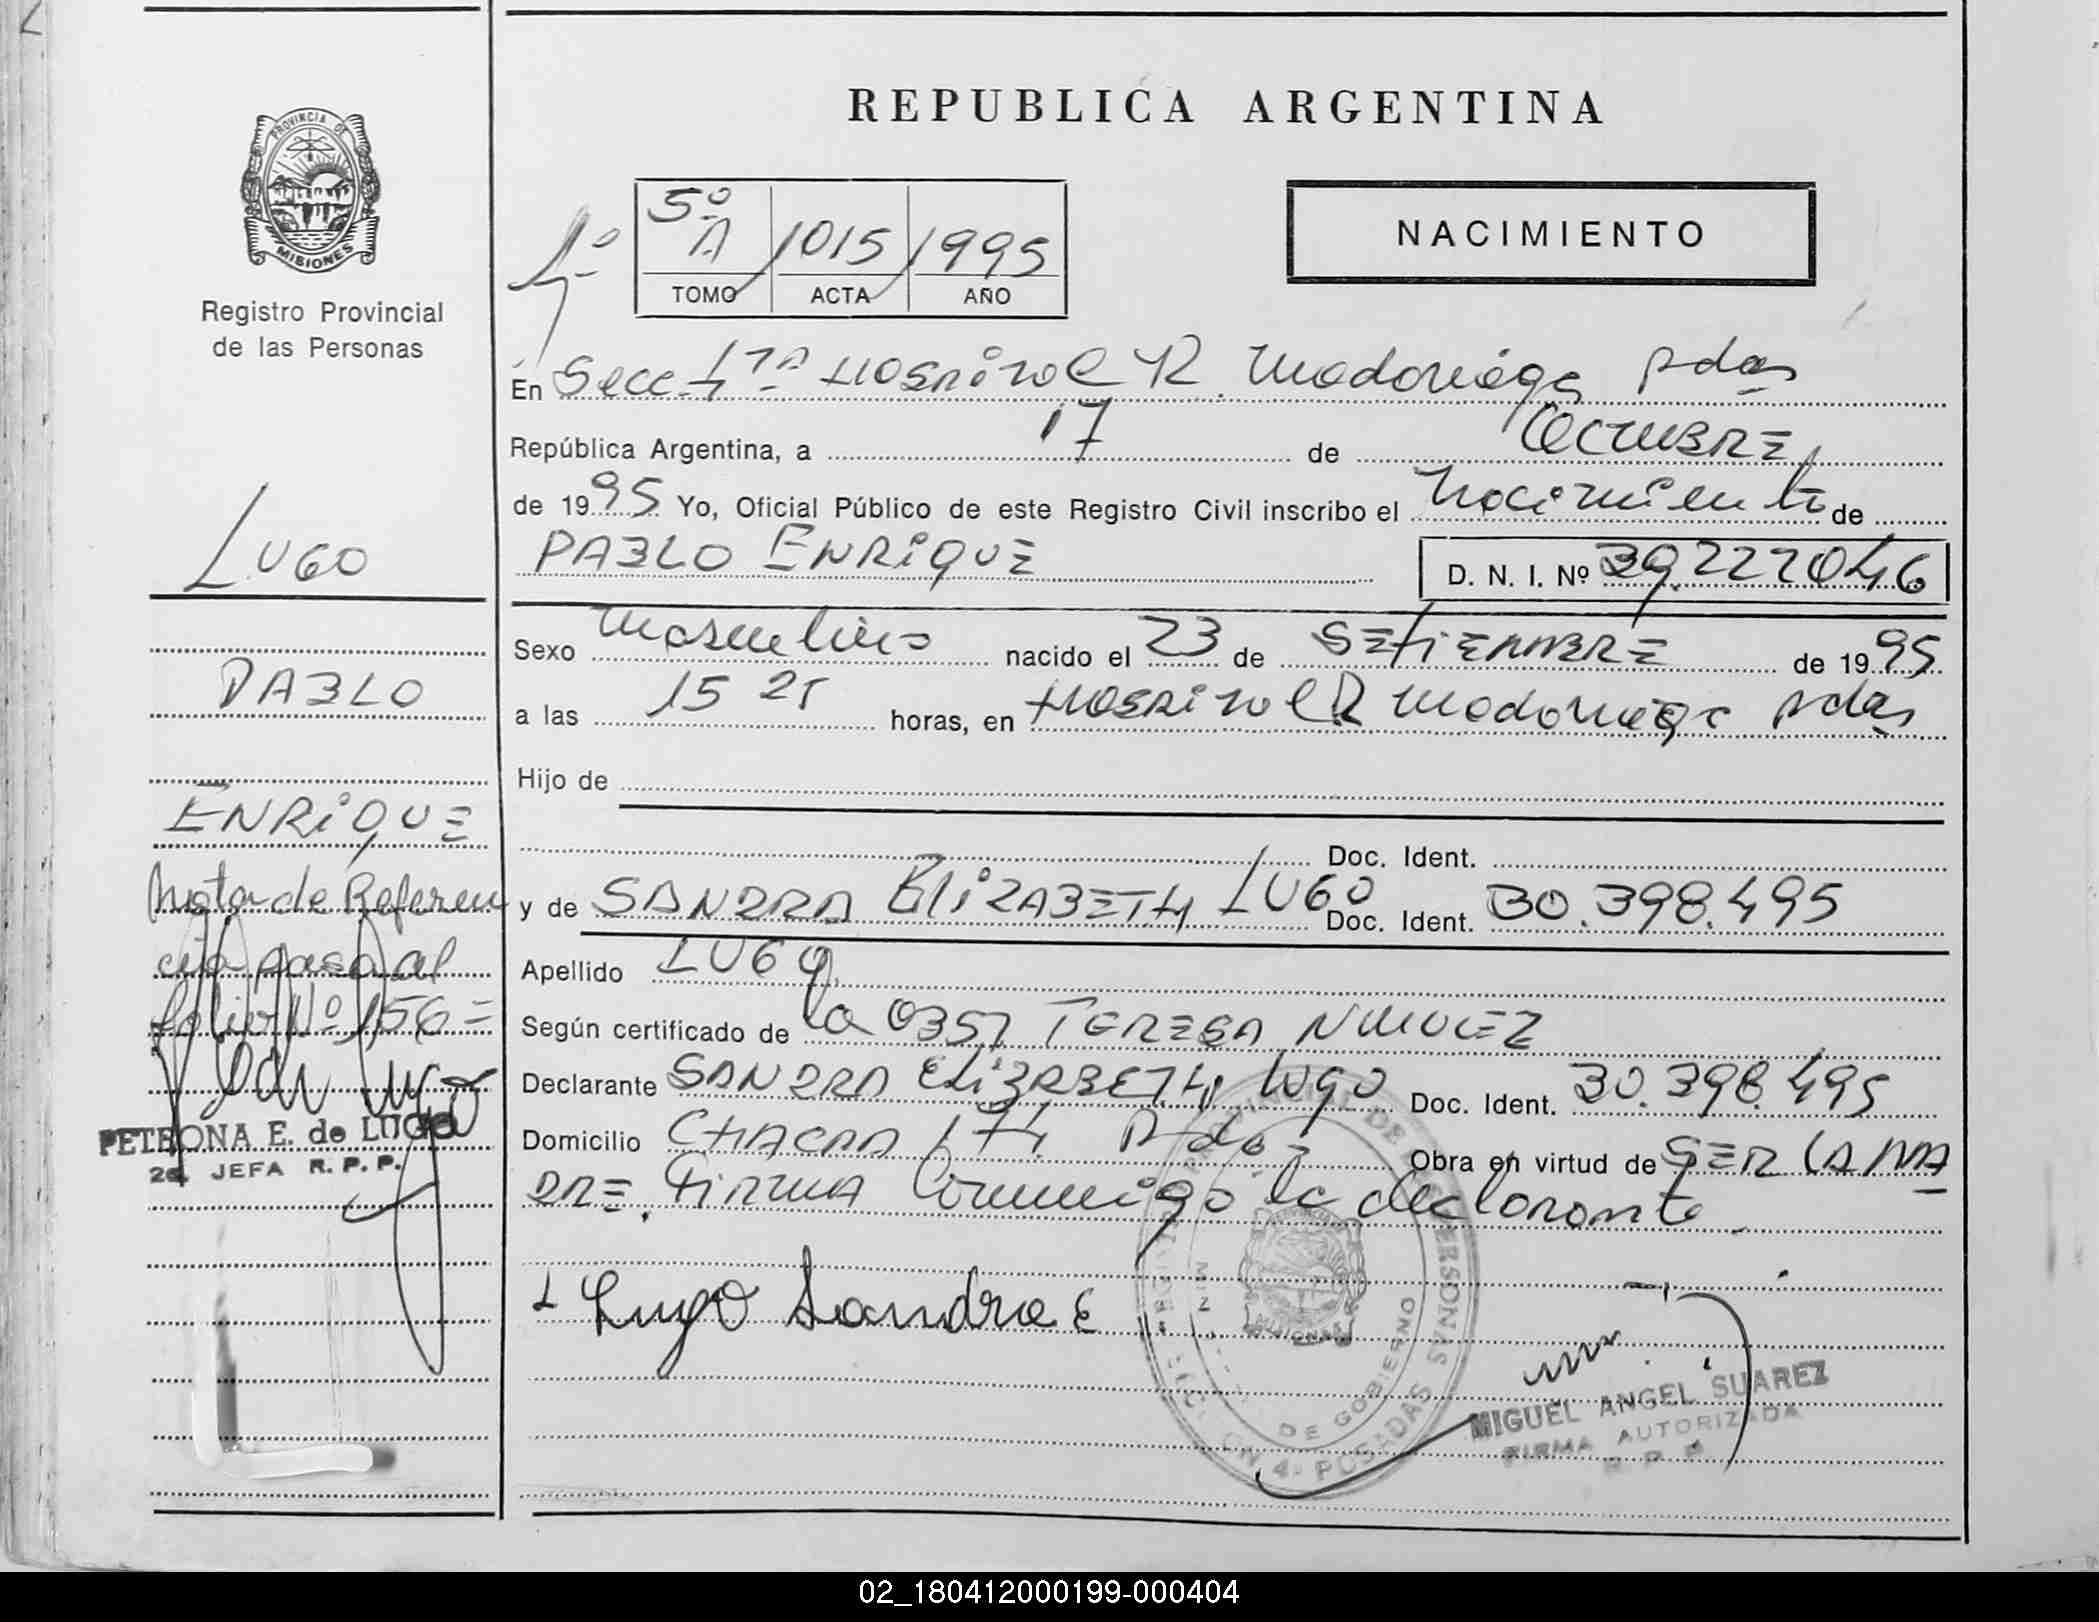 REPUBLICA ARGENTINA
PROVINCIA DE
MISIONES
Registro Provincial
de las Personas
5º A 1015 1995
TOMO ACTA AÑO
NACIMIENTO
En Secc 4ta Hospital R Madariaga Pdas
República Argentina, a 17 de Octubre
de 1995 Yo, Oficial Público de este Registro Civil inscribo el nacimiento de
PABLO ENRIQUE D. N. I. Nº 39.222046
Sexo masculino nacido el 23 de SETIEMBRE de 1995
a las 15 25 horas, en Hospital R Madariaga Pdas
Hijo de
Doc. Ident.
y de SANDRA ELIZABETH LUGO Doc. Ident. 30.398.495
Apellido LUGO
Según certificado de la Obst TERESA NUÑEZ
Declarante SANDRA ELIZABETH Lugo Doc. Ident. 30.398.495
Domicilio CHACRA Pdas Obra en virtud de SER LA MA
DRE. FIRMA Conmigo la declarante
Lugo Sandra E
LUGO
PABLO
ENRIQUE
Nota de Referen
cia pasa al
folio Nº 156=
PETRONA E. de LUGO
JEFA R. P. P.
PROVINCIAL DE LAS PERSONAS
MISIONES
DE GOBIERNO
4- POSADAS
MIGUEL ANGEL SUAREZ
FIRMA AUTORIZADA
R P P
02_180412000199-000404